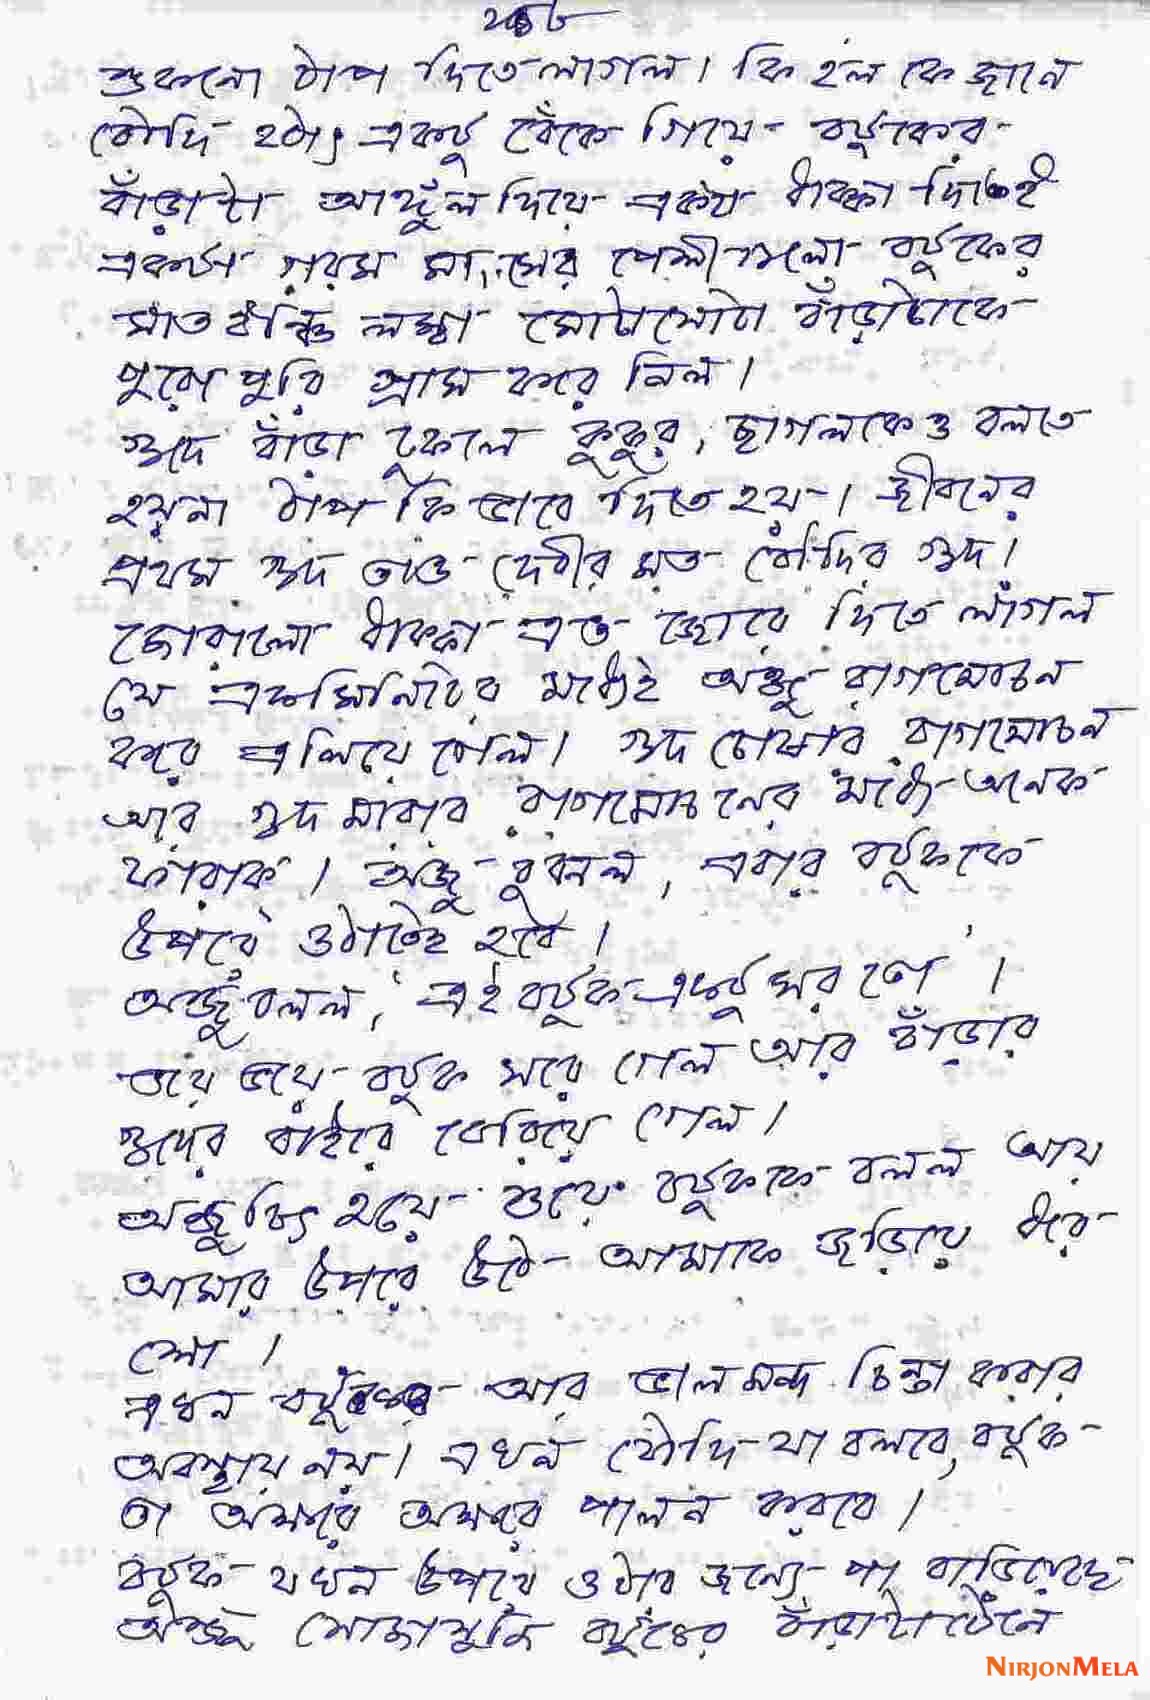 শুকনো ঠাপ দিতে লাগল। কি হল কে জানে
বৌদি হঠাৎ একটু বেঁকে গিয়ে বটুকের
বাঁড়াটা আঙ্গুল দিয়ে একটা ধাক্কা দিতেই
একটা গরম মাংসের পেশীগুলো বটুকের
সাত ইঞ্চি লম্বা মোটাসোটা বাঁড়াটাকে
পুরোপুরি গ্রাস করে নিল।
গুদে বাঁড়া ঢুকলে কুকুর, ছাগলকেও বলতে
হয়না ঠাপ কিভাবে দিতে হয়। জীবনের
প্রথম গুদ তাও দেবীর মত বৌদির গুদ।
জোরালো ধাক্কা এত জোরে দিতে লাগল
যে একমিনিটের মধ্যেই অঞ্জু রাগমোচন
করে এলিয়ে গেল। গুদ চোষার রাগমোচন
আর গুদ মারার রাগমোচনের মধ্যে অনেক
ফারাক। অঞ্জু বুঝল, এবার বটুককে
উপরে ওঠাতেই হবে।
অঞ্জু বলল, 'এই বটুক একটু সর তো'।
ভয়ে ভয়ে বটুক সরে গেল আর বাঁড়ার
গুদের বাইরে বেরিয়ে গেল।
অঞ্জু চিৎ হয়ে শুয়ে বটুককে বলল আয়
আমার উপরে উঠে আমাকে জড়িয়ে ধরে
শো।
এখন আর ভাল মন্দ চিন্তা করার
অবস্থায় নয়। এখন বৌদি যা বলবে, বটুক
তা অক্ষরে অক্ষরে পালন করবে।
বটুক যখন উপরে ওঠার জন্যে পা বাড়িয়েছে
অঞ্জু সোজাসুজি বটুকের বাঁড়াটা টেনে
NIRJONMELA